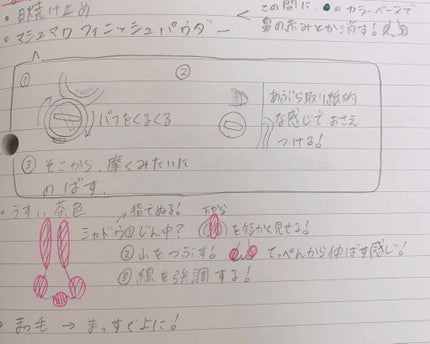 ・日焼け止め
この間に、●のカラーベースで
鼻の赤みとか消す!
・マシュマロ フィニッシュパウダー
①
②
パフをくるくる
あぶら取り紙的
な感じでおさえ
つける!
③ そこから、摩くみたいに
のばす。
・うすい茶色
指でぬる! 下から
シャドウ① じん中?
を短かく見せる!
②山をつぶす!
てっぺんから伸ばす感じ!
③線を強調する!
・まつ毛 → まっすぐ上に!